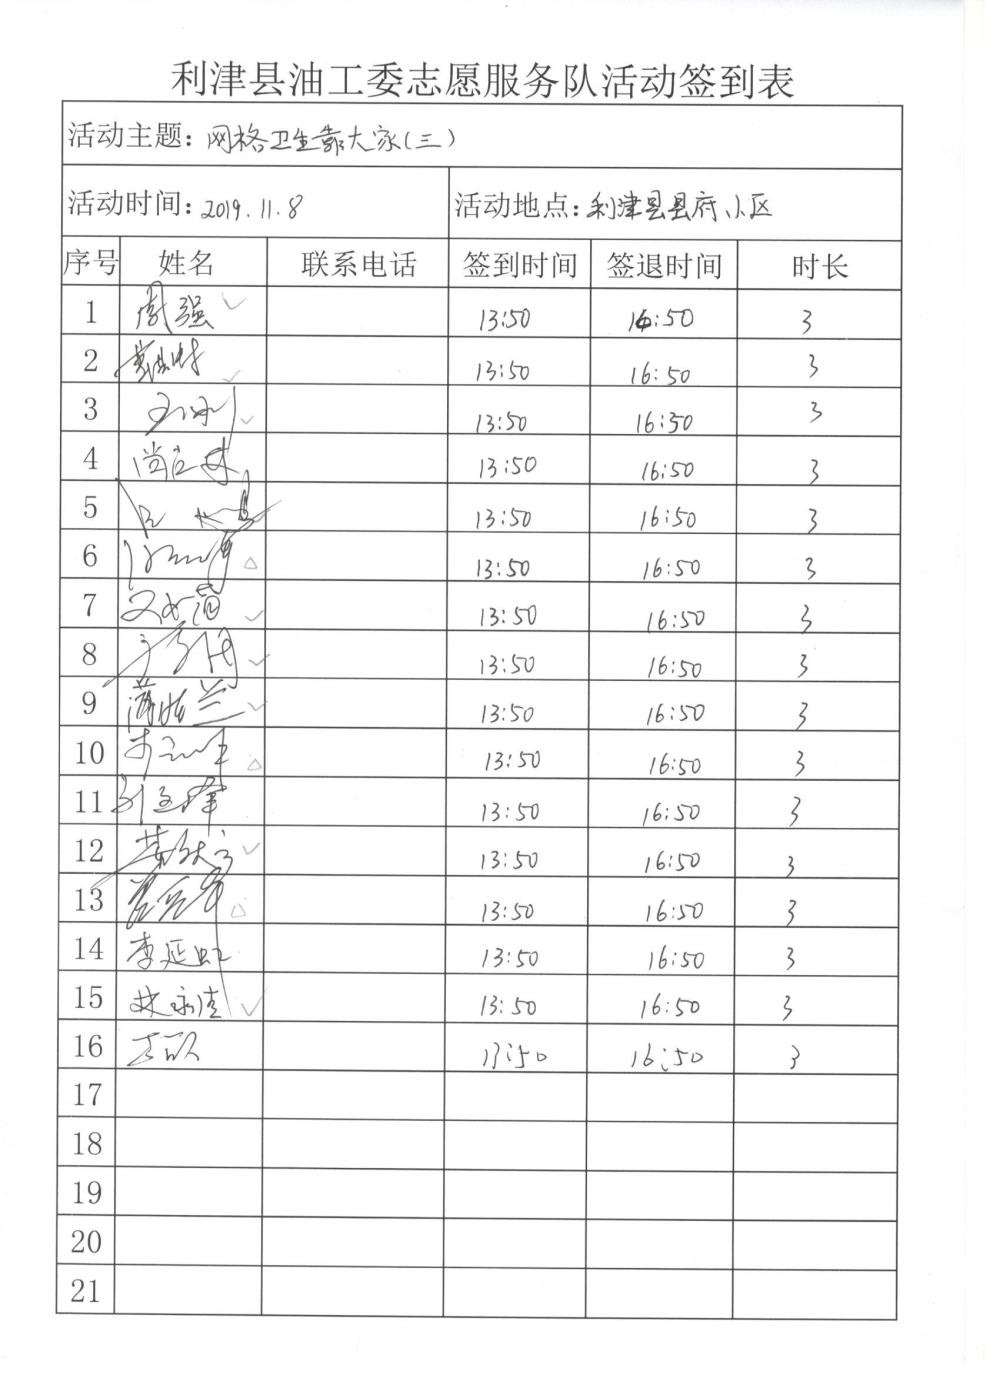 利津县油工委志愿服务队活动签到表
活动主题：网格卫生靠大家（三）
活动时间：2019.11.8 活动地点：利津县县府小区
序号 姓名 联系电话 签到时间 签退时间 时长
1 周强 13:50 16:50 3
2 13:50 16:50 3
3 13:50 16:50 3
4 13:50 16:50 3
5 13:50 16:50 3
6 13:50 16:50 3
7 13:50 16:50 3
8 13:50 16:50 3
9 13:50 16:50 3
10 13:50 16:50 3
11 13:50 16:50 3
12 13:50 16:50 3
13 13:50 16:50 3
14 李延虹 13:50 16:50 3
15 13:50 16:50 3
16 13:50 16:50 3
17
18
19
20
21